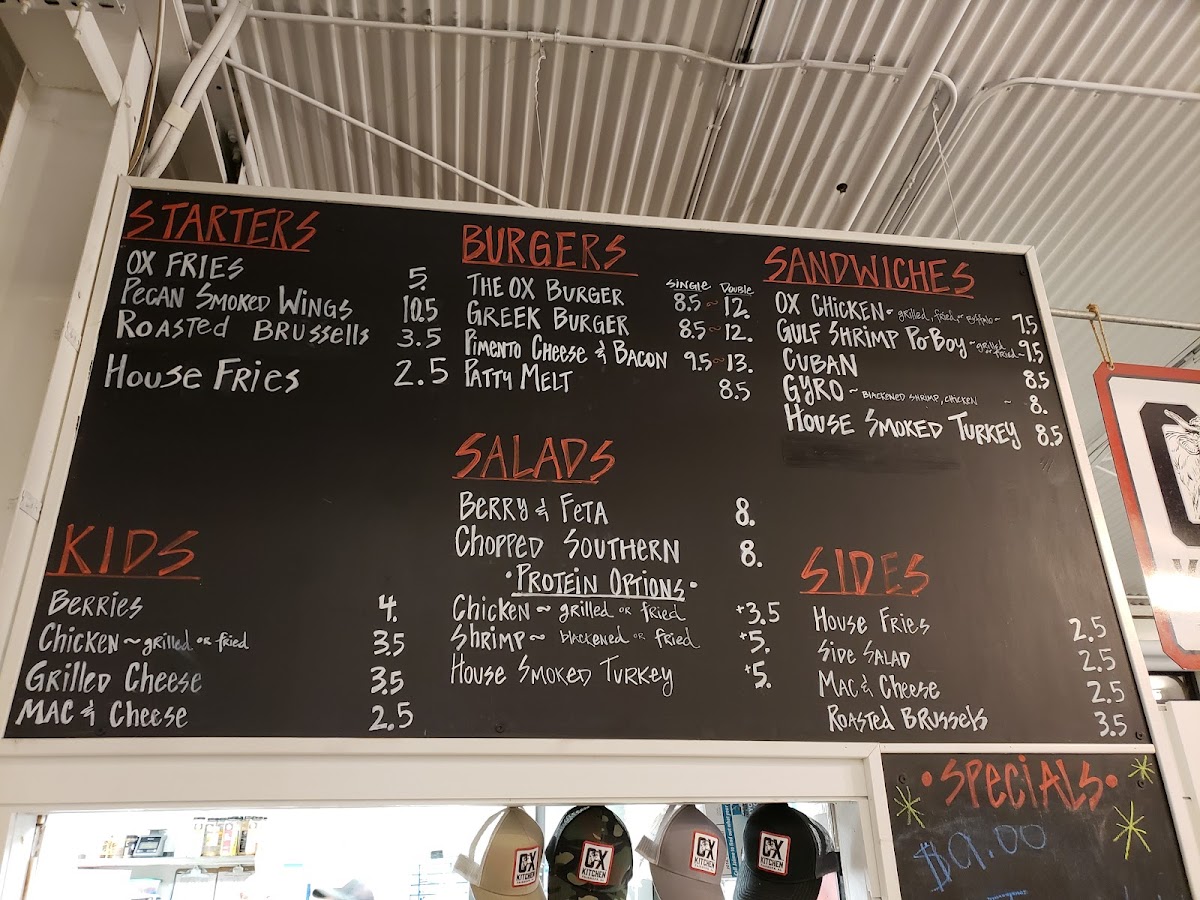 STARTERS
OX FRIES 5.
PECAN SMOKED WINGS 10.5
ROASTED BRUSSELLS 3.5
HOUSE FRIES 2.5
BURGERS
SINGLE DOUBLE
THE OX BURGER 8.5 ~ 12.
GREEK BURGER 8.5 ~ 12.
PIMENTO CHEESE & BACON 9.5 ~ 13.
PATTY MELT 8.5
SANDWICHES
OX CHICKEN - grilled, fried, or BUFFALO - 7.5
GULF SHRIMP PO-BOY ~ grilled or fried ~ 9.5
CUBAN 8.5
GYRO ~ BLACKENED SHRIMP, CHICKEN ~ 8.
HOUSE SMOKED TURKEY 8.5
SALADS
BERRY & FETA 8.
CHOPPED SOUTHERN 8.
• PROTEIN OPTIONS •
CHICKEN ~ grilled OR fried +3.5
SHRIMP ~ BLACKENED OR fried +5.
HOUSE SMOKED TURKEY +5.
KIDS
BERRIES 4.
CHICKEN ~ grilled OR fried 3.5
GRILLED CHEESE 3.5
MAC & CHEESE 2.5
SIDES
HOUSE FRIES 2.5
SIDE SALAD 2.5
MAC & CHEESE 2.5
ROASTED BRUSSELS 3.5
• SPECIALS •
$9.00
OX KITCHEN
OX KITCHEN
OX KITCHEN
OX KITCHEN